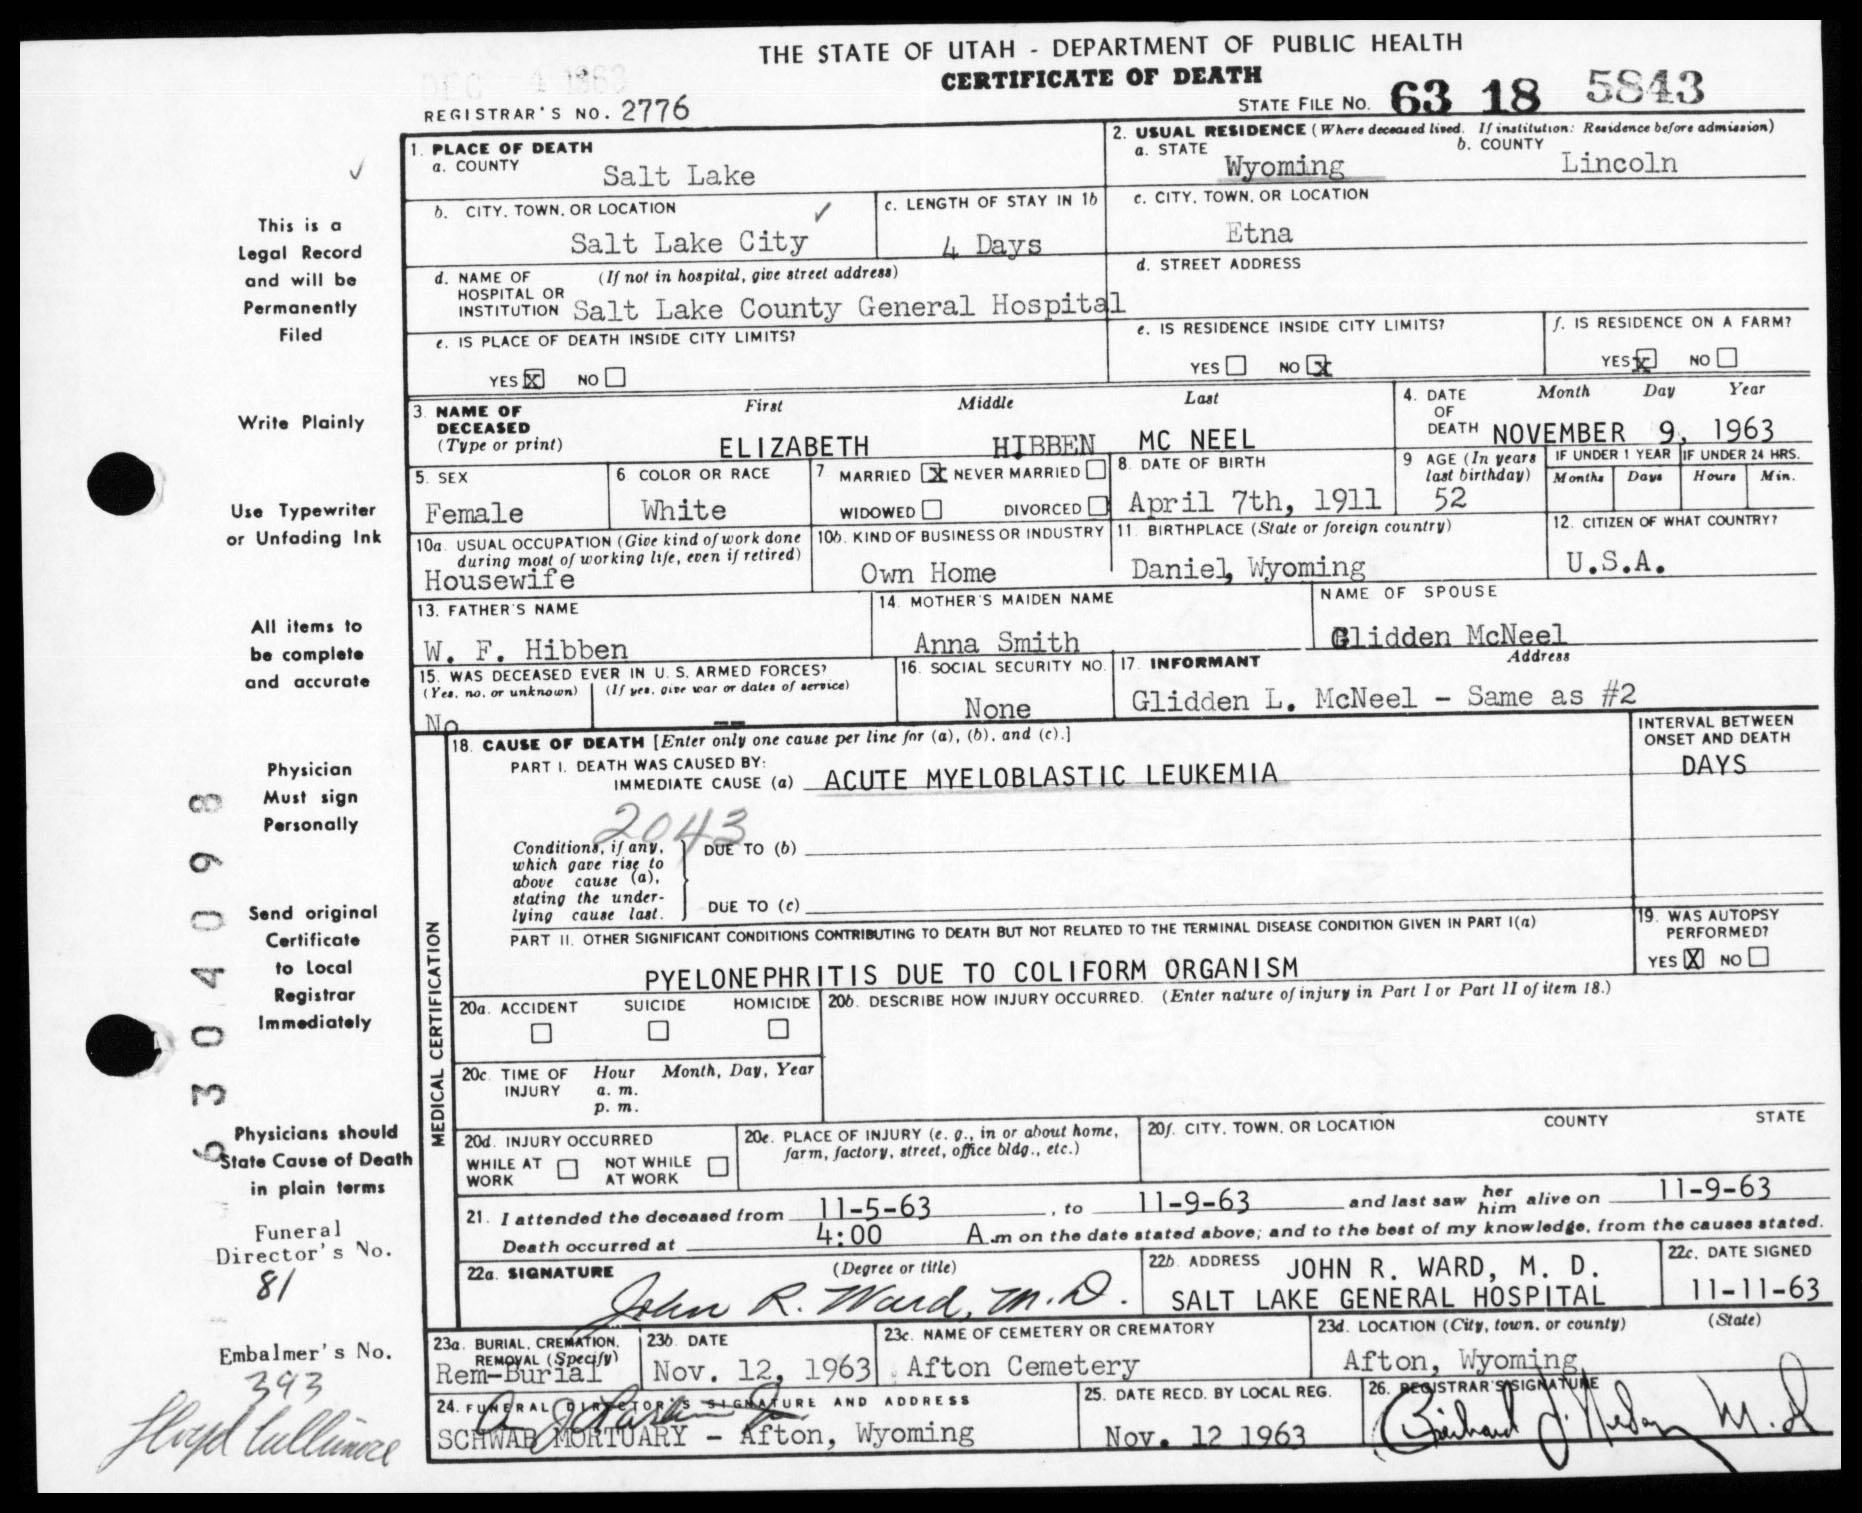 THE STATE OF UTAH - DEPARTMENT OF PUBLIC HEALTH
CERTIFICATE OF DEATH
DEC 4 1963
REGISTRAR'S NO. 2776
STATE FILE NO. 63 18 5843
1. PLACE OF DEATH
a. COUNTY Salt Lake
2. USUAL RESIDENCE (Where deceased lived. If institution: Residence before admission)
a. STATE Wyoming b. COUNTY Lincoln
b. CITY, TOWN, OR LOCATION Salt Lake City
c. LENGTH OF STAY IN 1b 4 Days
c. CITY, TOWN, OR LOCATION Etna
d. NAME OF HOSPITAL OR INSTITUTION (If not in hospital, give street address) Salt Lake County General Hospital
d. STREET ADDRESS
e. IS PLACE OF DEATH INSIDE CITY LIMITS?
YES X NO
e. IS RESIDENCE INSIDE CITY LIMITS?
YES NO X
f. IS RESIDENCE ON A FARM?
YES X NO
3. NAME OF DECEASED (Type or print)
First Middle Last
ELIZABETH HIBBEN MC NEEL
4. DATE OF DEATH Month Day Year
NOVEMBER 9, 1963
5. SEX Female
6. COLOR OR RACE White
7. MARRIED X NEVER MARRIED
WIDOWED DIVORCED
8. DATE OF BIRTH April 7th, 1911
9. AGE (In years last birthday) 52
IF UNDER 1 YEAR Months Days
IF UNDER 24 HRS. Hours Min.
10a. USUAL OCCUPATION (Give kind of work done during most of working life, even if retired) Housewife
10b. KIND OF BUSINESS OR INDUSTRY Own Home
11. BIRTHPLACE (State or foreign country) Daniel, Wyoming
12. CITIZEN OF WHAT COUNTRY? U.S.A.
13. FATHER'S NAME W. F. Hibben
14. MOTHER'S MAIDEN NAME Anna Smith
NAME OF SPOUSE Glidden McNeel
15. WAS DECEASED EVER IN U. S. ARMED FORCES?
(Yes, no, or unknown) (If yes, give war or dates of service)
No --
16. SOCIAL SECURITY NO. None
17. INFORMANT Address
Glidden L. McNeel - Same as #2
MEDICAL CERTIFICATION
18. CAUSE OF DEATH [Enter only one cause per line for (a), (b), and (c).]
INTERVAL BETWEEN ONSET AND DEATH
PART I. DEATH WAS CAUSED BY:
IMMEDIATE CAUSE (a) ACUTE MYELOBLASTIC LEUKEMIA DAYS
2043
Conditions, if any, which gave rise to above cause (a), stating the underlying cause last.
DUE TO (b)
DUE TO (c)
PART II. OTHER SIGNIFICANT CONDITIONS CONTRIBUTING TO DEATH BUT NOT RELATED TO THE TERMINAL DISEASE CONDITION GIVEN IN PART I(a)
PYELONEPHRITIS DUE TO COLIFORM ORGANISM
19. WAS AUTOPSY PERFORMED?
YES X NO
20a. ACCIDENT SUICIDE HOMICIDE
20b. DESCRIBE HOW INJURY OCCURRED. (Enter nature of injury in Part I or Part II of item 18.)
20c. TIME OF INJURY Hour Month, Day, Year
a. m.
p. m.
20d. INJURY OCCURRED
WHILE AT WORK NOT WHILE AT WORK
20e. PLACE OF INJURY (e. g., in or about home, farm, factory, street, office bldg., etc.)
20f. CITY, TOWN, OR LOCATION COUNTY STATE
21. I attended the deceased from 11-5-63, to 11-9-63 and last saw her him alive on 11-9-63
Death occurred at 4:00 A.m on the date stated above; and to the best of my knowledge, from the causes stated.
22a. SIGNATURE (Degree or title)
John R. Ward, M.D.
22b. ADDRESS JOHN R. WARD, M. D.
SALT LAKE GENERAL HOSPITAL
22c. DATE SIGNED 11-11-63
23a. BURIAL, CREMATION, REMOVAL (Specify) Rem-Burial
23b. DATE Nov. 12, 1963
23c. NAME OF CEMETERY OR CREMATORY Afton Cemetery
23d. LOCATION (City, town, or county) (State)
Afton, Wyoming
24. FUNERAL DIRECTOR'S SIGNATURE AND ADDRESS
SCHWAB MORTUARY - Afton, Wyoming
25. DATE RECD. BY LOCAL REG. Nov. 12 1963
26. REGISTRAR'S SIGNATURE
This is a
Legal Record
and will be
Permanently
Filed
Write Plainly
Use Typewriter
or Unfading Ink
All items to
be complete
and accurate
Physician
Must sign
Personally
Send original
Certificate
to Local
Registrar
Immediately
Physicians should
State Cause of Death
in plain terms
Funeral
Director's No.
81
Embalmer's No.
393
6304098